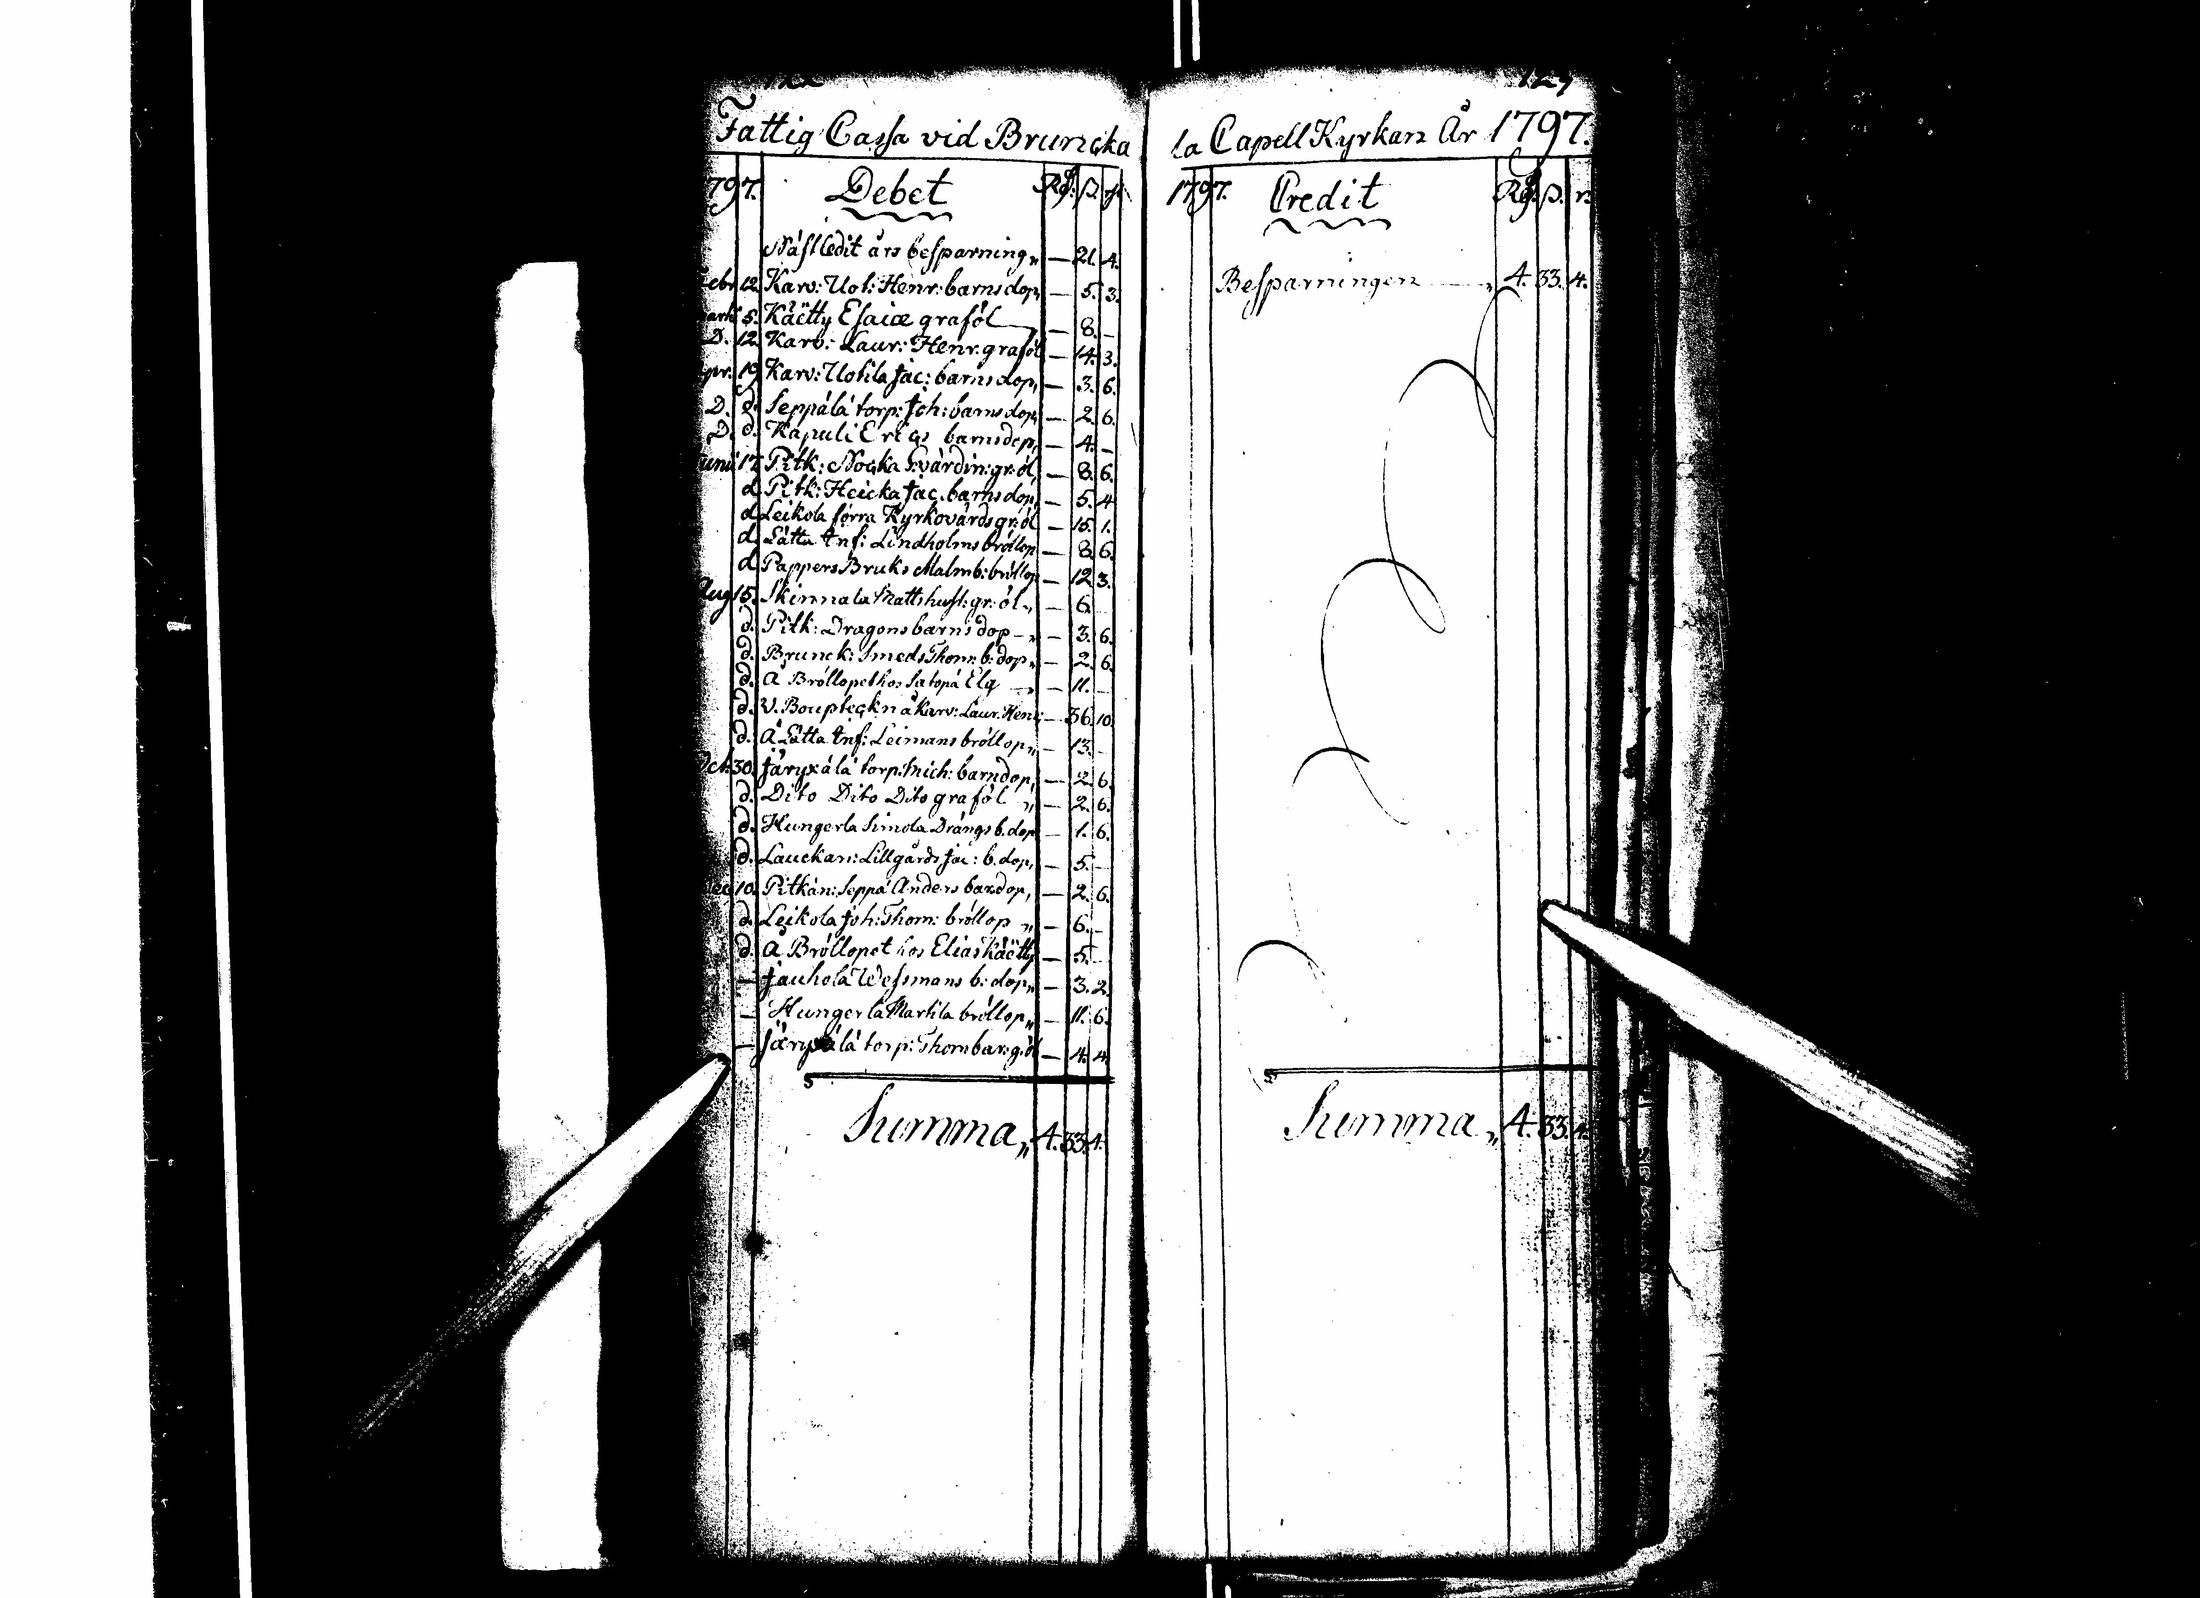 Fattig Cassa vid Bruncka
797. Debet Rd: ß. r.
Näst ledit års besparning „ — 21. 4.
Febr. 12. Karv: Uot: Henr: barnsdop, — 5. 3.
Marti 5. Käetty Esaiæ graföl — 8. —
D. 12. Karv: Laur: Henr. graföl — 14. 3.
Apr. 19. Karv: Uotila Jac: barnsdop, — 3. 6.
D. d. Seppälä torp: Joh: barnsdop, — 2. 6.
D. d. Kapuli Erics barnsdop, — 4. —
Junii 17. Pitk: Nocka Svärdin: gr: öl, — 8. 6.
d. Pitk: Heicka Jac. barnsdop, — 5. 4
d. Leikola förra Kyrkovärds gr: öl — 15. 1.
d. Lätta Inf: Lindholms bröllop — 8. 6.
d. Pappers Bruks Malmb: bröllop — 12 3.
Aug 15. Skinnala Matts hust: gr: öl „ — 6.
d. Pitk: Dragons barnsdop — „ — 3. 6.
d. Brunck: Smeds Thom: b: dop „ — 2. 6.
d. Å Bröllopet hos Satopä Elg — „ — 11. —
d. V. Boupteckn å Karv: Laur. Henr: — 36. 10.
d. Å Lätta Inf: Leimans bröllop „ — 13. —
Oct. 30. Järyxälä torp. Mich: barndop, — 2. 6.
d. Dito Dito Dito graföl „ — 2. 6.
d. Hungerla Simola Drängs b. dop — 1. 6.
d. Lauckan: Lillgårds Jac: b. dop, — 5. —
Dec 10. Pitkän: Seppä Anders bardop, — 2. 6.
d. Leikola Joh: Thom: bröllop „ — 6. —
d. Å Bröllopet hos Elias Käetty — 5. —
— Jauhola Wessmans b: dop „ — 3. 2.
— Hungerla Martila bröllop „ — 11. 6.
— Järyxälä torp: Thom bar: g: öl — 4. 4
Summa „ 4. 33. 4.
la Capell Kyrkan År 1797.
1797. Credit Rd. ß. r.
Besparningen „ 4. 33. 4.
Summa „ 4. 33. 4.